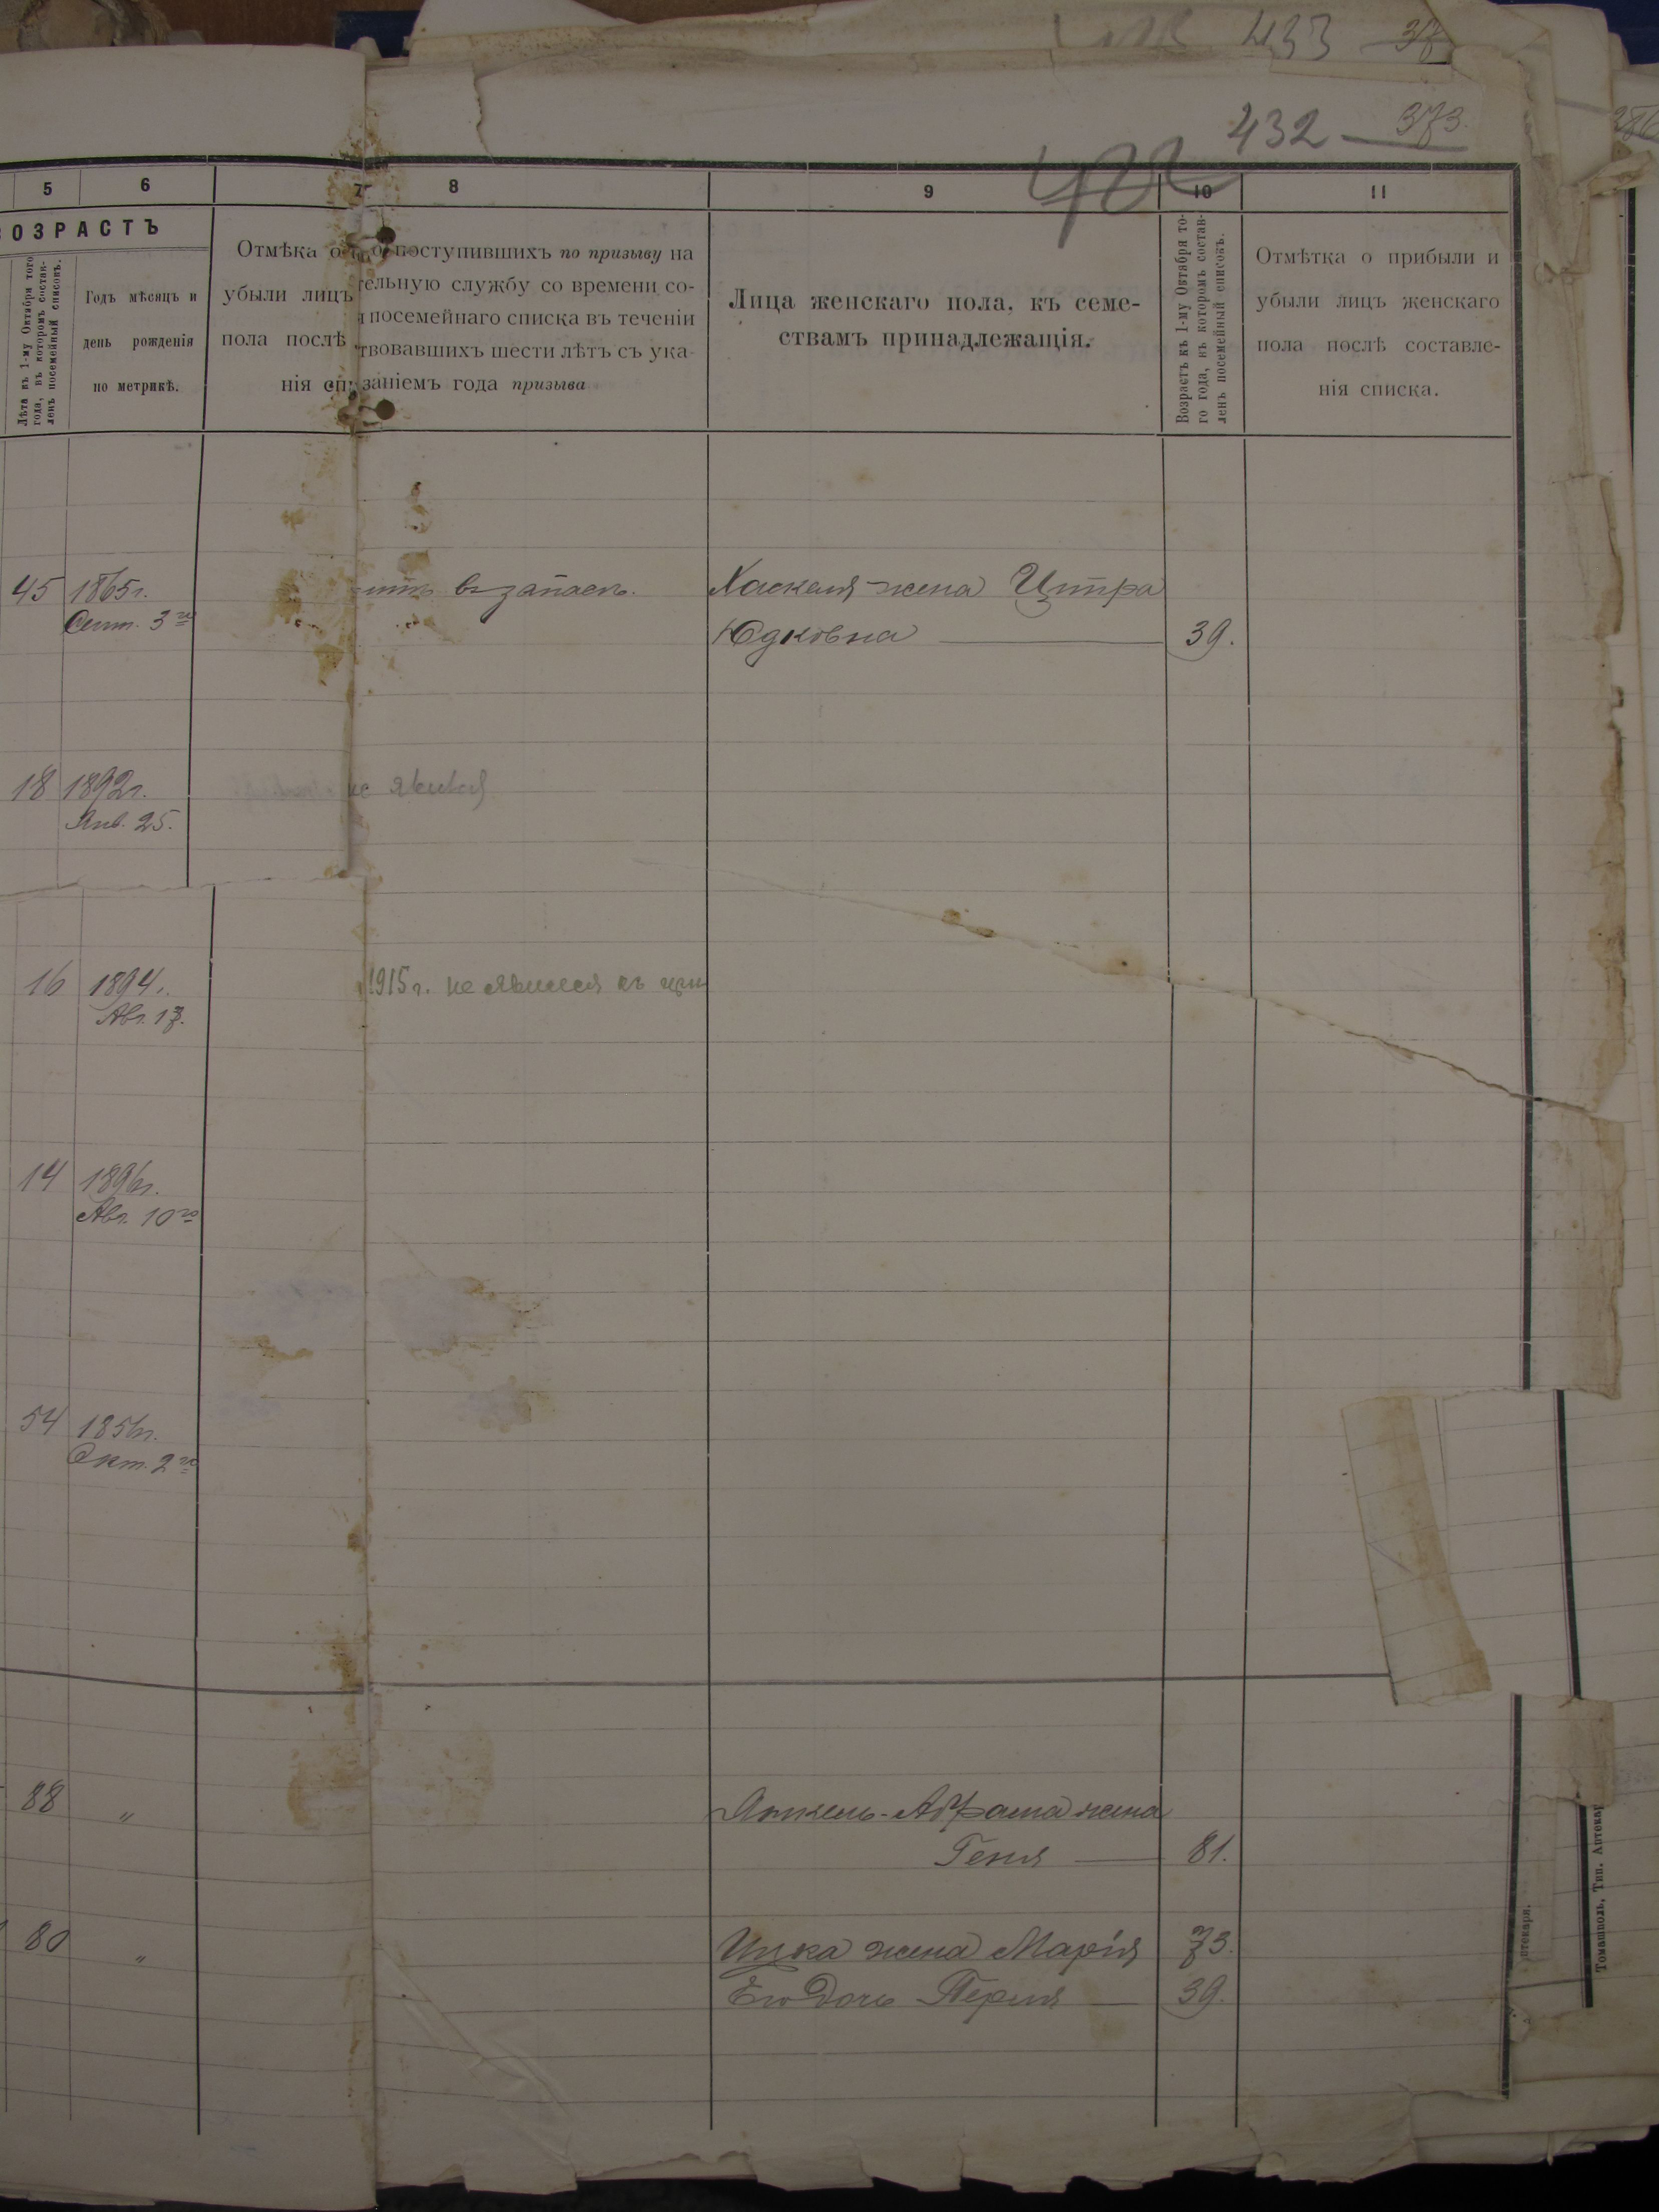 433 37
432 — 373.
422
286
5 6 7 8 9 10 11
ОЗРАСТЪ
Лѣта къ 1-му Октября того
года, въ которомъ состав-
ленъ посемейный списокъ.
Годъ мѣсяцъ и
день рожденія
по метрикѣ.
Отмѣка о
убыли лицъ
пола послѣ
нія сп
поступившихъ по призыву на
тельную службу со времени со-
я посемейнаго списка въ теченіи
твовавшихъ шести лѣтъ съ ука-
заніемъ года призыва
Лица женскаго пола, къ семе-
ствамъ принадлежащія.
Возрастъ къ 1-му Октября то-
го года, въ которомъ состав-
ленъ посемейный списокъ.
Отмѣтка о прибыли и
убыли лицъ женскаго
пола послѣ составле-
нія списка.
45 1865г. въ запасъ. Хаскеля жена Цитра
Сент. 3го Юдковна — 39.
18 1892г. не явился
Янв. 25.
16 1894г. 1915г. не явился къ при
Авг. 17.
14 1896г.
Авг. 10го
54 1856г.
Окт. 2го
88 " Янкель-Абрама жена
Геня — 81.
80 " Ицка жена Марія 73.
Его дочь Перля — 39.
птекаря.
Томашполь, Тип. Аптекар